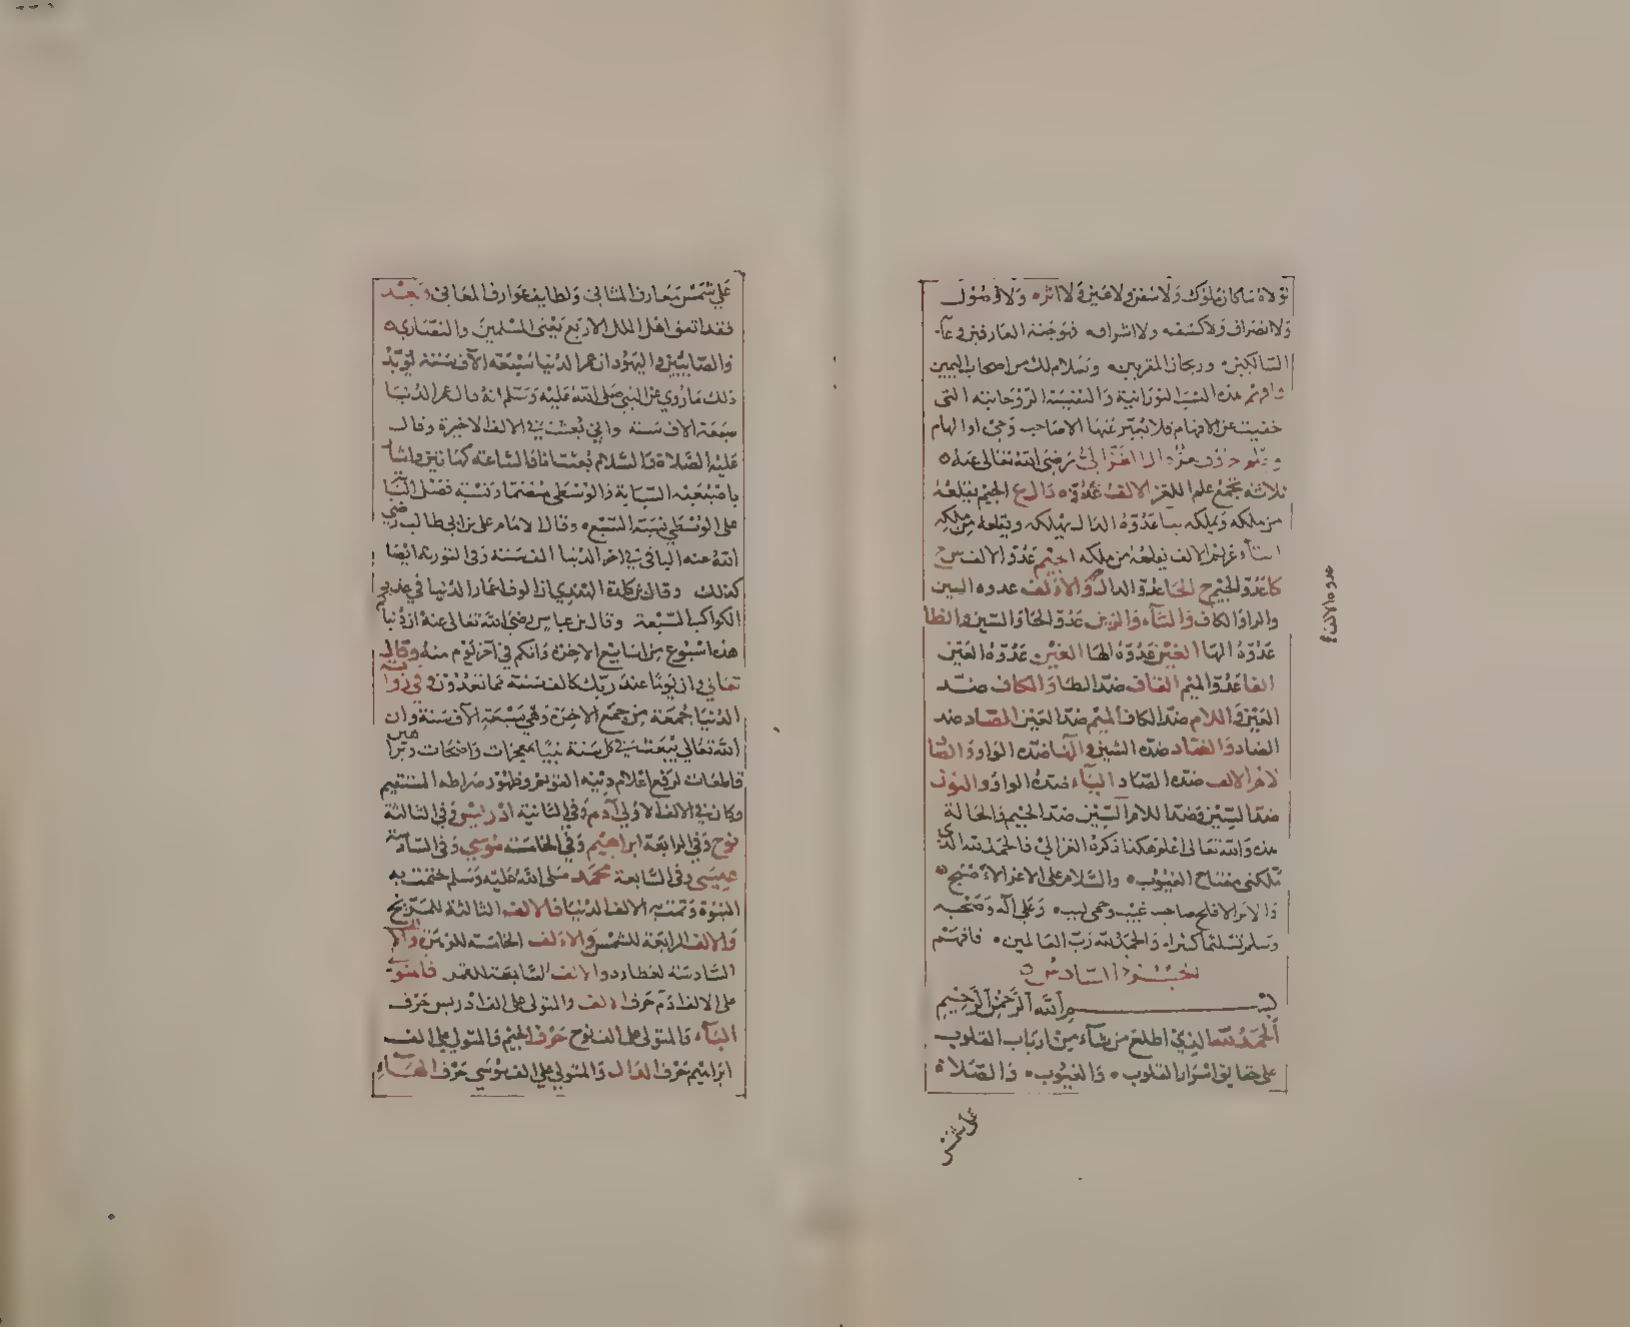 لولاه ما كان ملوك ولا سفن ولا عين ولا اثره ولا وصول
ولا انصراف ولا كشفه ولا اشرافه فهو جنة العارفين
السالكين وريحان المقربين وسلام لك من اصحاب اليمين
هذه النسب النورانية والنفيسة الروحانية التي
خفيت عن الافهام فلا يعبر عنها الا صاحب وحي او الهام
الغزالي رضي الله تعالى عنه
ثلاثة تجمع علم اللغز الالف عدوه دال ع الجيم يقلعه
من ملكه ويملكه عدوه الدال يهلكه ويقلعه من ملكه
الالف يقلعه من ملكه الجيم عدو الالف س ح
كا عدو الجيم ح الحا عدو الدال والالف عدوه السين
والراوالكاف والتاء والزين عدو الحا والسين والظا
عدوه الها العين عدوه الها الغين عدوه العين
الفا عدو الميم القاف ضد الطا والكاف ضد
العين واللام ضد الكاف الميم ضد العين الصاد ضد
الضاد والضاد ضده الشين والها ضده الواو والتا
لام الالف ضده الصاد الياء ضده الواو والنون
ضد السين وضد اللام السين ضد الجيم والحا لة
هذه والله تعالى اعلم هكذا ذكره الغزالي فالحمد لله الذي
ملكني مفتاح الغيوب والسلام على الاعز الاصبح
والابر الافلح صاحب غيب وحمى لبيب وعلى اله وصحبه
وسلم تسليما كثيرا والحمد لله رب العالمين فافهم
الجزو السادس
بسم الله الرحمن الرحيم
الحمد لله الذي اطلع من شاء من ارباب القلوب
على حقايق اسرار القلوب والغيوب والصلاة
على شمس
عدوه الالف
على شمس معارف المثاني ولطايف عوارف المعاني وبعد
فقد اتفق اهل الملل الاربع يعني المسلمين والنصارى
والصابيين واليهود ان عمر الدنيا سبعة الاف سنة يويد
ذلك ما روي عن النبي صلى الله عليه وسلم انه قال عمر الدنيا
سبعة الاف سنة واني بعثت في الالف الاخيرة وقال
عليه الصلاة والسلام بعثت انا والساعة كهاتين واشار
باصبعيه السبابة والوسطى ونسبة فضل السبا
على الوسطى نسبة السبع وقال الامام علي بن ابي طالب رضي
الله عنه الباقي في اخر الدنيا الف سنة وفي التورية ايضا
كذلك وقال الوف اعمار الدنيا في
الكواكب السبعة وقال بن عباس رضي الله تعالى عنه ان دنيا
هذه اسبوع من اسابيع الاخرة وانكم في آخر يوم منه وقال
تعالى وان يوما عند ربك كالف سنة مما تعدون وفي رواية
الدنيا جمعة من جمع الاخرة وهي سبعة الاف سنة وان
الله تعالى يبعث في كل سنة نبيا بمعجزات واضحات وبراهين
قاطعات لرفع اعلام دينه القويم وظهور صراطه المستقيم
وكان في الالف الاولى آدم وفي الثانية ادريس وفي الثالثة
نوح وفي الرابعة ابراهيم وفي الخامسة موسى وفي السادسة
عيسى وفي السابعة محمد صلى الله عليه وسلم ختمت به
النبوة وتمت به الالف الدنيا فالالف الثالثة للمريخ
والالف الرابعة للشمس والالف الخامسة للزهرة والالف
السادسة لعطارد والالف السابعة للقمر فالمتولي
على الالف ادم حرف الالف والمتولي على الف ادريس حرف
الباء والمتولي على الف نوح حرف الجيم والمتولي على الف
ابراهيم حرف الدال والمتولي على الف موسى حرف الهاء